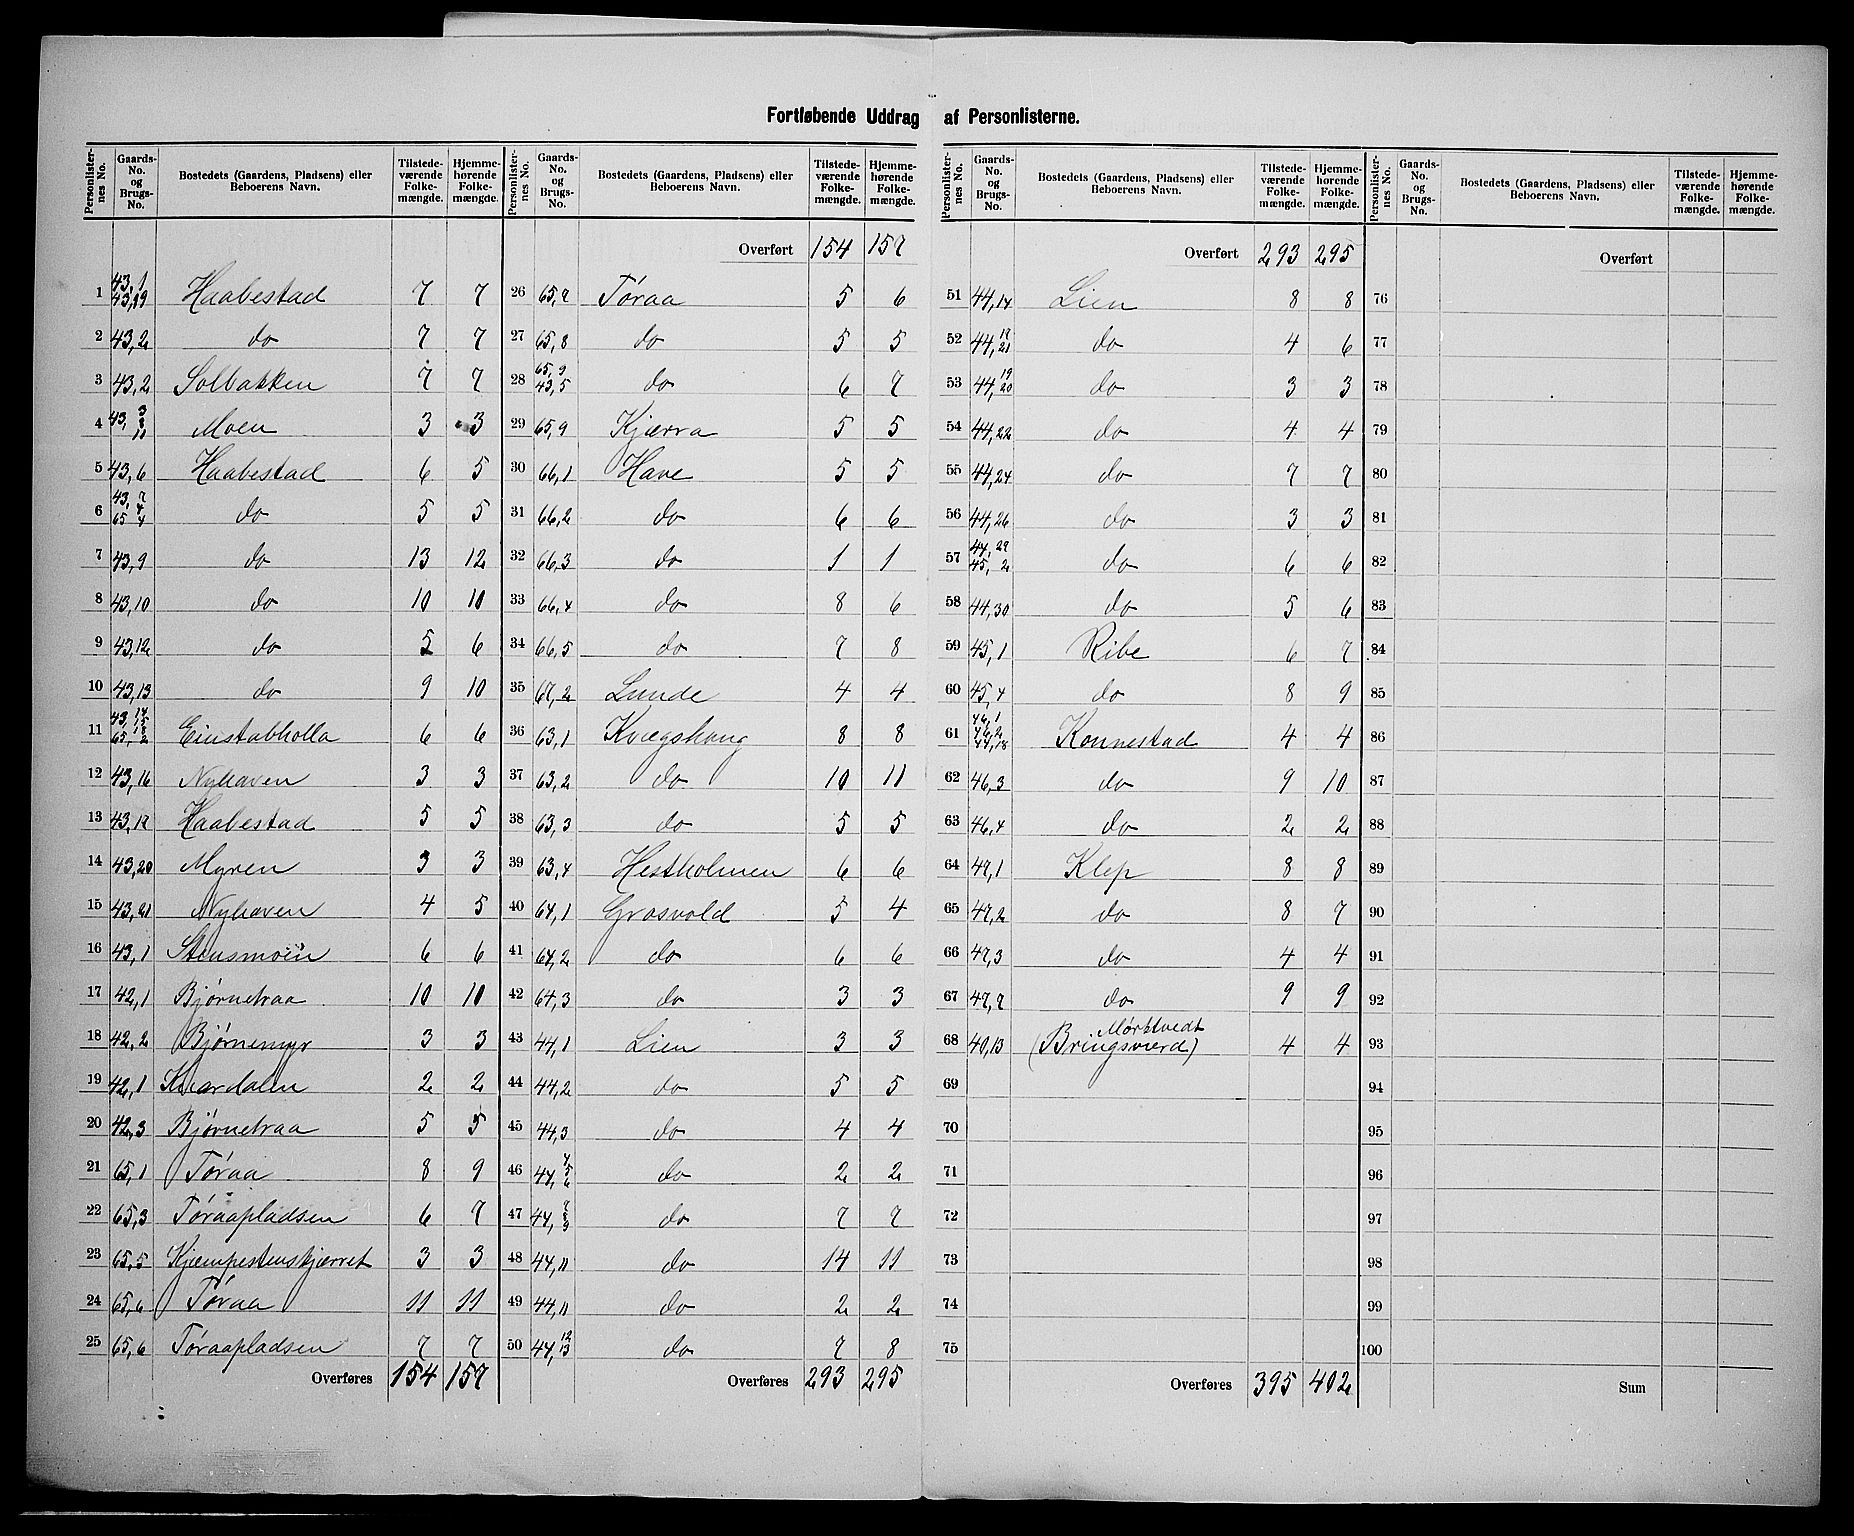 Fortløbende Uddrag af Personlisterne.
Personlister-nes No. | Gaards-No. og Brugs-No. | Bostedets (Gaardens, Pladsens) eller Beboerens Navn. | Tilstede-værende Folke-mængde. | Hjemme-hørende Folke-mængde.
1 | 43,1 43,19 | Haabestad | 7 | 7
2 | 43,2 | do | 7 | 7
3 | 43,2 | Solbakken | 7 | 7
4 | 43, 3 8 11 | Moen | 3 | 3
5 | 43,6 | Haabestad | 6 | 5
6 | 43,7 4 65 4 | do | 5 | 5
7 | 43,9 | do | 13 | 12
8 | 43,10 | do | 10 | 10
9 | 43,12 | do | 5 | 6
10 | 43,13 | do | 9 | 10
11 | 43,14 15 18 65,2 | Einstabholla | 6 | 6
12 | 43,16 | Nyhaven | 3 | 3
13 | 43,17 | Haabestad | 5 | 5
14 | 43,20 | Myren | 3 | 3
15 | 43,21 | Nyhaven | 4 | 5
16 | 43,1 | Stensmoen | 6 | 6
17 | 42,1 | Bjørnetraa | 10 | 10
18 | 42,2 | Bjørnemyr | 3 | 3
19 | 42,1 | Kverdalen | 2 | 2
20 | 42,3 | Bjørnetraa | 5 | 5
21 | 65,1 | Tøraa | 8 | 9
22 | 65,3 | Tøraapladsen | 6 | 7
23 | 65,5 | Kjæmpestenskjærret | 3 | 3
24 | 65,6 | Tøraa | 11 | 11
25 | 65,6 | Tøraapladsen | 7 | 7
Overføres | 154 | 157
Personlister-nes No. | Gaards-No. og Brugs-No. | Bostedets (Gaardens, Pladsens) eller Beboerens Navn. | Tilstede-værende Folke-mængde. | Hjemme-hørende Folke-mængde.
Overført | 154 | 157
26 | 65,7 | Tøraa | 5 | 6
27 | 65,8 | do | 5 | 5
28 | 65,9 43,5 | do | 6 | 7
29 | 65,9 | Kjærra | 5 | 5
30 | 66,1 | Have | 5 | 5
31 | 66,2 | do | 6 | 6
32 | 66,3 | do | 1 | 1
33 | 66,4 | do | 8 | 6
34 | 66,5 | do | 7 | 8
35 | 67,2 | Lunde | 4 | 4
36 | 63,1 | Kvægshaug | 8 | 8
37 | 63,2 | do | 10 | 11
38 | 63,3 | do | 5 | 5
39 | 63,4 | Hestholmen | 6 | 6
40 | 64,1 | Grosvold | 5 | 4
41 | 64,2 | do | 6 | 6
42 | 64,3 | do | 3 | 3
43 | 44,1 | Lien | 3 | 3
44 | 44,2 | do | 5 | 5
45 | 44,3 | do | 4 | 4
46 | 44, 4 5 6 | do | 2 | 2
47 | 44, 7 8 9 | do | 7 | 7
48 | 44,11 | do | 14 | 11
49 | 44,11 | do | 2 | 2
50 | 44, 12 13 | do | 7 | 8
Overføres | 293 | 295
Personlister-nes No. | Gaards-No. og Brugs-No. | Bostedets (Gaardens, Pladsens) eller Beboerens Navn. | Tilstede-værende Folke-mængde. | Hjemme-hørende Folke-mængde.
Overført | 293 | 295
51 | 44,14 | Lien | 8 | 8
52 | 44, 17 21 | do | 4 | 6
53 | 44, 19 20 | do | 3 | 3
54 | 44,22 | do | 4 | 4
55 | 44,24 | do | 7 | 7
56 | 44,26 | do | 3 | 3
57 | 44,29 45,2 | do | 6 | 6
58 | 44,30 | do | 5 | 6
59 | 45,1 | Ribe | 6 | 7
60 | 45,4 | do | 8 | 9
61 | 46,1 46,2 44,18 | Konnestad | 4 | 4
62 | 46,3 | do | 9 | 10
63 | 46,4 | do | 2 | 2
64 | 47,1 | Klep | 8 | 8
65 | 47,2 | do | 8 | 7
66 | 47,3 | do | 4 | 4
67 | 47,7 | do | 9 | 9
68 | 40,13 | Mørktvedt (Bringsværd) | 4 | 4
69
70
71
72
73
74
75
Overføres | 395 | 402
Personlister-nes No. | Gaards-No. og Brugs-No. | Bostedets (Gaardens, Pladsens) eller Beboerens Navn. | Tilstede-værende Folke-mængde. | Hjemme-hørende Folke-mængde.
Overført
76
77
78
79
80
81
82
83
84
85
86
87
88
89
90
91
92
93
94
95
96
97
98
99
100
Sum